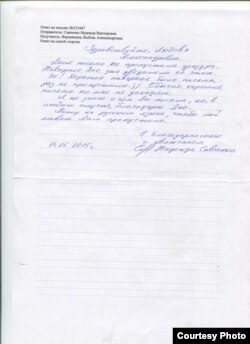 Ответ на письмо №532447
Отправитель: Савченко Надежда Викторовна
Получатель: Вершинина Любовь Александровна
Ответ на одной стороне
Здравствуйте, Любовь
Александровна.
Ваше письмо не пропустила цензура.
Наверное Вас уже уведомили об этом
За! Хорошее наверное было письмо,
раз не пропустили :)! Обычно хорошие
письма ко мне не доходят.
Я не знаю о чем Вы писали, но, в
любом случае, благодарю Вас.
Пишу на русском языке, чтобы мой
ответ Вам пропустили.
С благодарностью
уважением
14.05.2015г. Надежда Савченко
Courtesy Photo